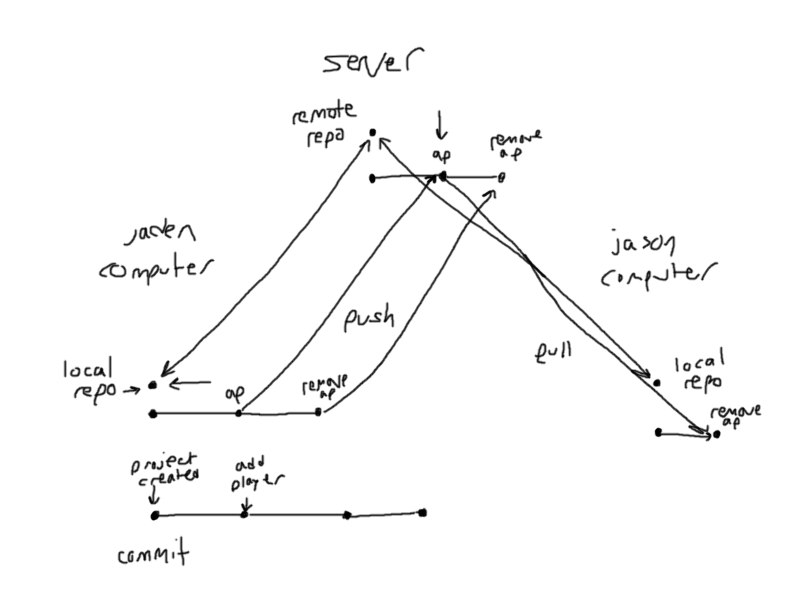 server
remote
repo
ap
remove
ap
jaden
computer
jason
computer
push
pull
local
repo
ap
remove
ap
local
repo
remove
ap
project
created
add
player
commit